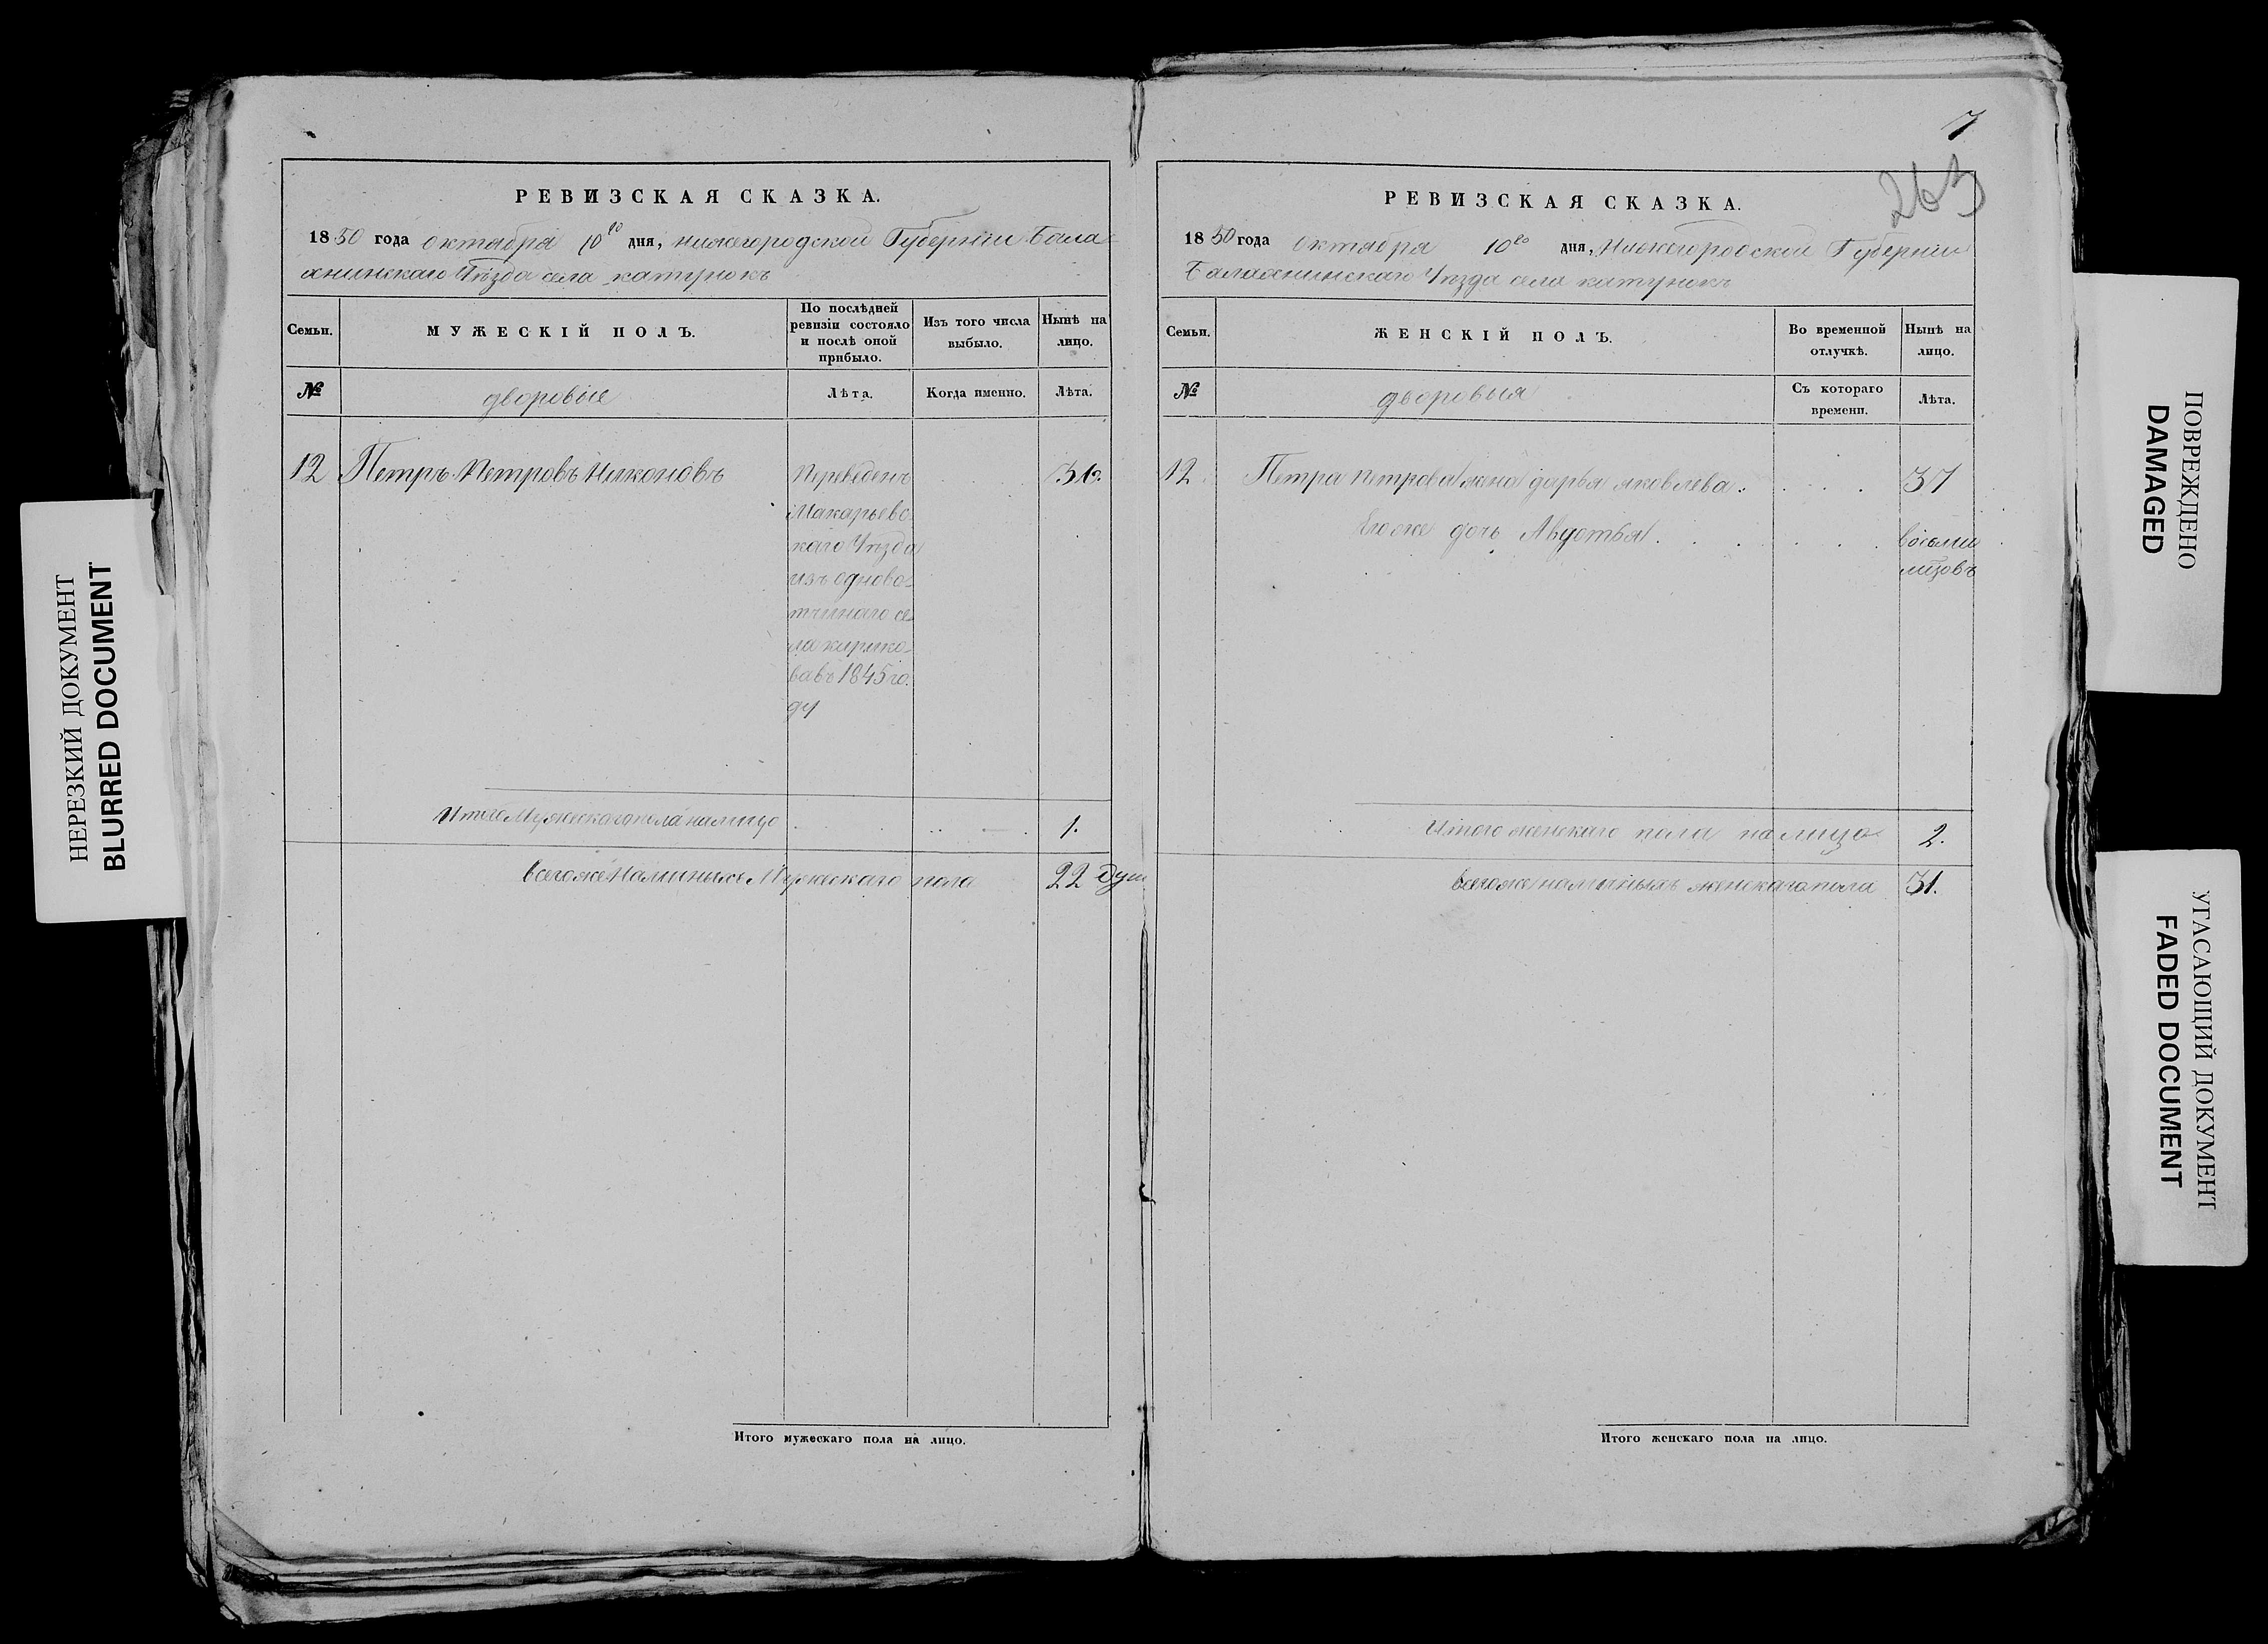 РЕВИЗСКАЯ СКАЗКА.
1850 года октября 10го дня, нижегородской Губернiи Бала-
хнинскаго Уѣзда села катунокъ
Семьи.
МУЖЕСКIЙ ПОЛЪ.
По послѣдней
ревизiи состояло
и послѣ оной
прибыло.
Изъ того числа
выбыло.
Нынѣ на
лицо.
№
дворовые
Лѣта.
Когда именно.
Лѣта.
12 Петръ Петровъ Никоновъ
Переведенъ
Макарьевс
каго Уѣзда
изъ одново-
тчинаго се-
ла
вавъ 1845 го.
ду
Итого Мужескаго пола налицо 1.
всегоже Наличныхъ Мужескаго пола 22 душ
Итого мужескаго пола на лицо.
7
263
РЕВИЗСКАЯ СКАЗКА.
1850 года Октября 10го дня, Нижегородской Губернiи
Балахнинскаго Уѣзда села катунокъ
Семьи.
ЖЕНСКIЙ ПОЛЪ.
Во временной
отлучкѣ.
Нынѣ на
лицо.
№
дворовыя
Съ котораго
времени.
Лѣта.
12. Петра Петрова жена дарья яковлева. 37
Егоже дочь Авдотья.
Итого женскаго пола налицо 2.
всегоже наличныхъ женскаго пола 31.
Итого женскаго пола на лицо.
НЕРЕЗКИЙ ДОКУМЕНТ
BLURRED DOCUMENT
ПОВРЕЖДЕНО
DAMAGED
УГАСАЮЩИЙ ДОКУМЕНТ
FADED DOCUMENT